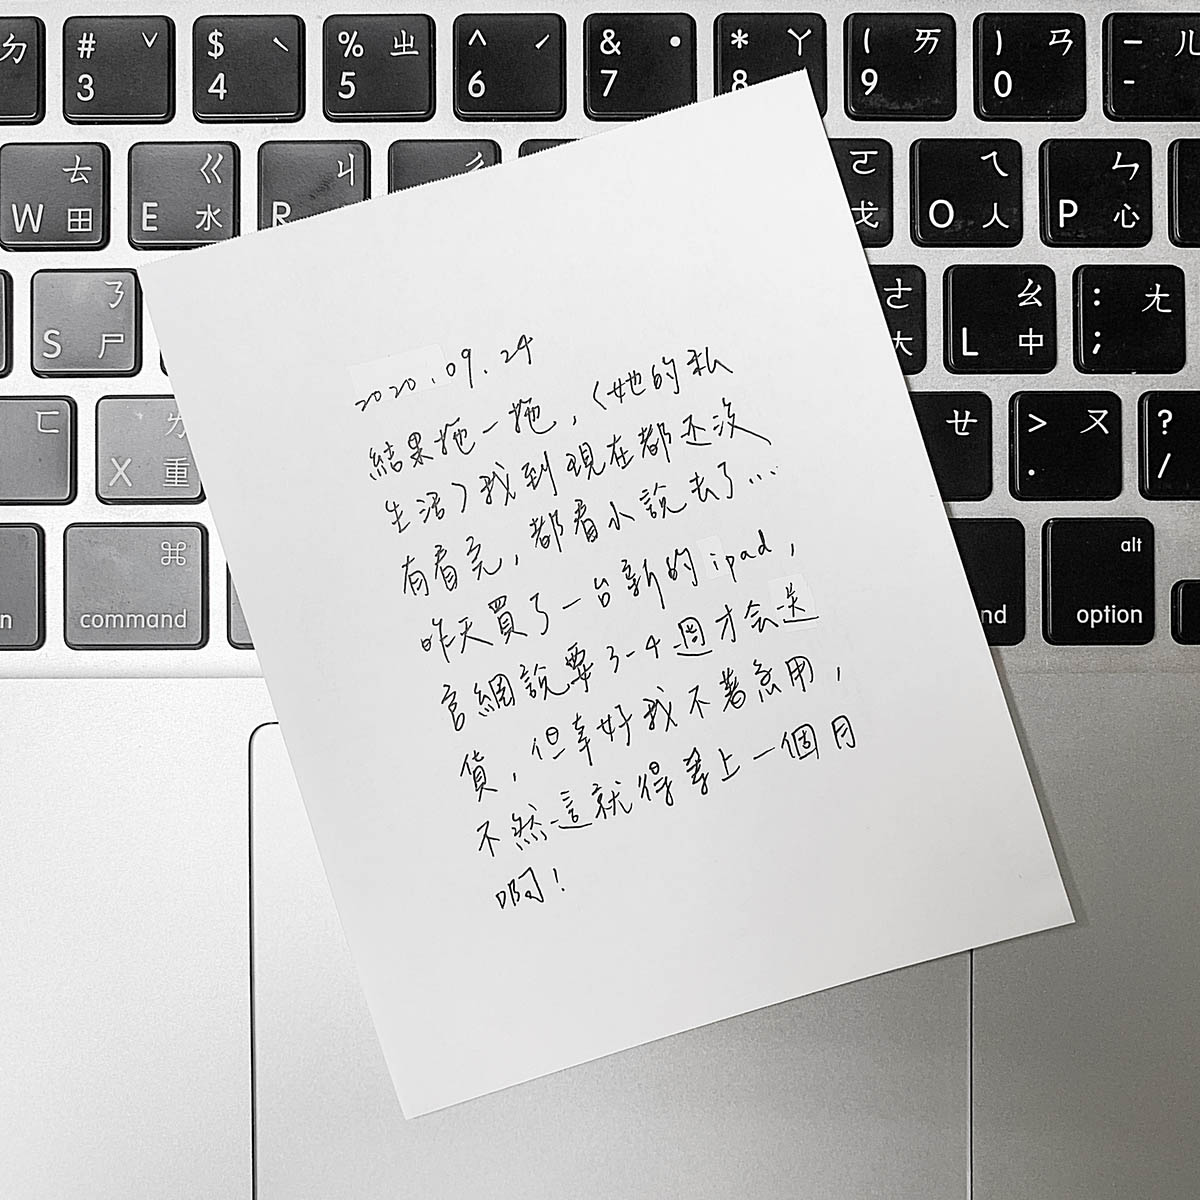 ㄉ # ˇ $ ˋ % ㄓ ^ ˊ & ˙ * ㄚ ( ㄞ ) ㄢ — ㄦ
3 4 5 6 7 8 9 0 -
ㄊ ㄍ ㄐ ㄔ ㄛ ㄟ ㄣ
W 田 E 水 R 戈 O 人 P 心
ㄋ ㄠ : ㄤ
S 尸 L 中 ;
ㄈ ㄌ ㄝ > ㄡ ?
X 重 . /
⌘ alt
command option
2020.09.24
結果拖一拖,〈她的私
生活〉我到現在都還沒
有看完,都看小說去了...
昨天買了一台新的ipad,
官網說要3-4週才會送
貨,但幸好我不著急用,
不然這就得等上一個月
啊!